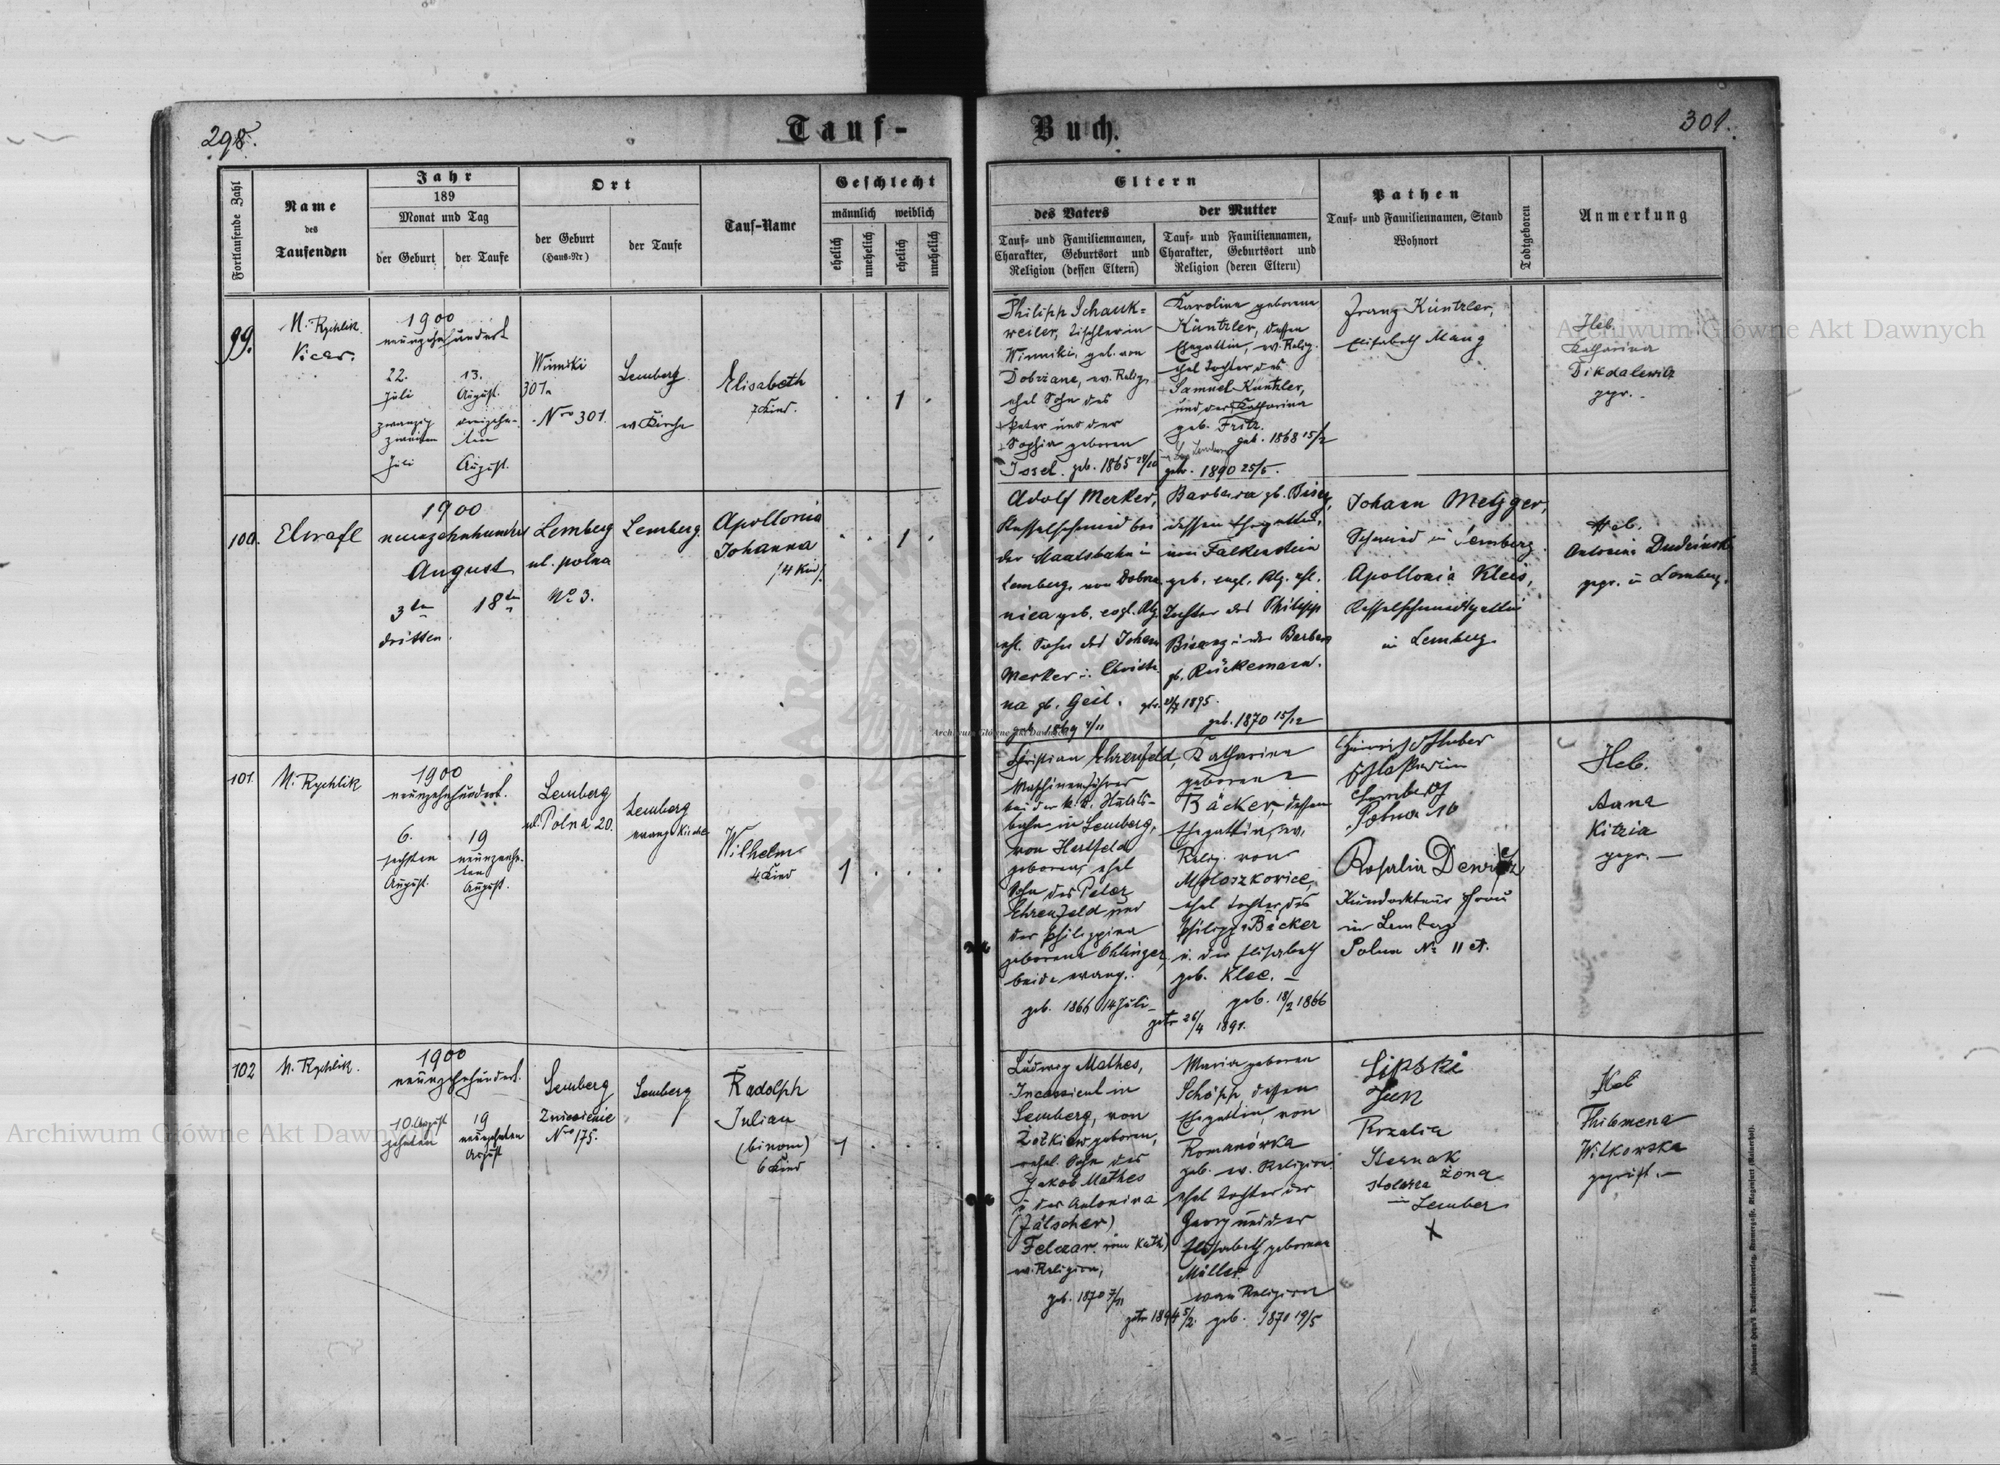 298.
Tauf-
Buch.
301.
Fortlaufende Zahl
Name
des
Taufenden
Jahr
189
Monat und Tag
der Geburt
der Taufe
Ort
der Geburt
(Haus-Nr)
der Taufe
Tauf-Name
Geschlecht
männlich
weiblich
ehelich
unehelich
ehelich
unehelich
Eltern
des Vaters
Tauf- und Familiennamen,
Charakter, Geburtsort und
Religion (dessen Eltern)
der Mutter
Tauf- und Familiennamen,
Charakter, Geburtsort und
Religion (deren Eltern)
Pathen
Tauf- und Familiennamen, Stand
Wohnort
Todtgeboren
Anmerkung
99.
N. Rychlik
Vicar.
1900
neunzehnhundert
22.
Juli
zwanzig
zweiten
Juli
13.
August
dreizehn-
ten
August.
Winniki
301
Nro 301.
Lemberg
ev Kirche
Elisabeth
7 Kind.
1
Philipp Schauk-
weiler, Tischler in
Winniki, geb. von
Dobrzane, ev. Relig.
ehel Sohn des
Peter und der
Sophia geboren
Issel. geb. 1865
Karoline geborene
Küntzler, dessen
Ehegattin, ev. Relig.
ehel Tochter des
Samuel Küntzler,
und der Katharina
geb. Fritz.
geb. 1868 15/2
getr. 1890 25/5.
Franz Küntzler,
Elisabeth Mang
Heb.
Katharina
Dikdalewicz
gepr.
100.
Elwafl
1900
neunzehnhundert
August
3ten
dritten.
18ten
Lemberg
ul. polna
No 3.
Lemberg.
Apollonia
Johanna
/4 Kind/.
1
Adolf Merker,
Kesselschmied bei
der Staatsbahn in
Lemberg, von Dobrza
nica geb. evgl. Rlg.
ehl. Sohn des Johann
Merker u. Christi
na gb. Geil.
Barbara gb. Bisanz,
dessen Ehegattin,
von Falkenstein
geb. evgl. Rlg. ehl.
Tochter des Philipp
Bisanz u. der Barbara
gb. Rückemann.
1895.
geb. 1870 15/12
Johann Metzger,
Schmied in Lemberg.
Apollonia Klees,
Kesselschmiedsgattin
in Lemberg
Heb.
Antonia Dudzinska
gepr. in Lemberg.
101.
N. Rychlik
1900
neunzehnhundert.
6.
sechsten
August.
19
neunzehn-
ten
August.
Lemberg
ul. Polna 20.
Lemberg
evang Kirche
Wilhelm
4 Kind
1
Christian Ehrenfeld,
Maschinenführer
bei der k. k. Staats-
bahn in Lemberg,
von Hartfeld
geboren, ehel
Sohn des Peter
Ehrenfeld und
der Philippina
geborene Ohlinger,
beide evang.
geb. 1866 14 Juli
Katharina
geborene
Bäcker, dessen
Ehegattin, ev.
Relig. von
Moloszkowice,
ehel Tochter des
Philipp Bäcker
u. der Elisabeth
geb. Klee.
geb. 18/2 1866
getr 26/4 1891.
Heinrich Huber
Schlosser in
Lemberg
Polna 16
Rosalia Dewicz
Kondukteurs Frau
in Lemberg
Polna No 11 a.
Heb.
Anna
Kitzia
gepr.
102
N. Rychlik.
1900
neunzehnhundert.
10. August
zehnten
19
neunzehnten
August
Lemberg
Zniesienie
Nro 175.
Lemberg
Radolph
Julian
(binom)
6 Kind
1
Ludwig Mathes,
Incassient in
Lemberg, von
Żółkiew geboren,
Sohn des
Jakob Mathes
u der Antonina
(Fälscher)
Felczar röm Kath)
ev. Religion,
geb. 1870 7/11
Maria geboren
Schöpp dessen
Ehegattin, von
Romanówka
geb. ev. Religion
ehel Tochter der
Georg und der
Elisabeth geborene
Müller.
evan Religion
getr 1894 5/2. geb. 1870 19/5
Lipski
Jan
Rozalia
Sternak
żona
stolarza
Lember
x
Heb
Philomena
Wilkowska
geprüft.
Archiwum Główne Akt Dawnych
Archiwum Główne Akt Dawnych
Archiwum Główne Akt Dawnych